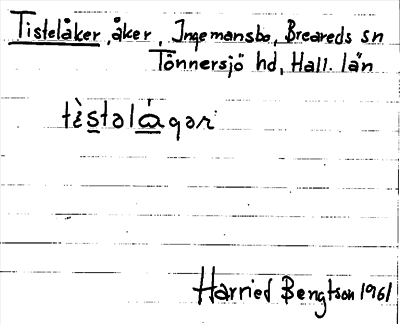 Tistelåker, åker, Ingemansbo, Breareds sn
Tönnersjö hd, Hall. län
tìstəlágər
Harried Bengtson 1961